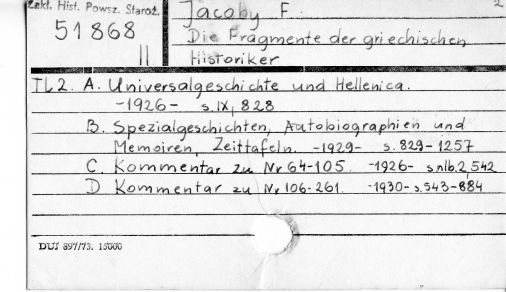 Zakł. Hist. Powsz. Staroż.
51868
II
Jacoby F.
2
Die Fragmente der griechischen
Historiker
TL2. A. Universalgeschichte und Hellenica.
-1926- s. IX, 828
B. Spezialgeschichten, Autobiographien und
Memoiren, Zeittafeln. -1929- s. 829-1257
C. Kommentar zu Nr 64-105. -1926- s nlb. 2, 542
D Kommentar zu Nr 106-261. -1930- s. 543-884
DUJ 897/73. 15000